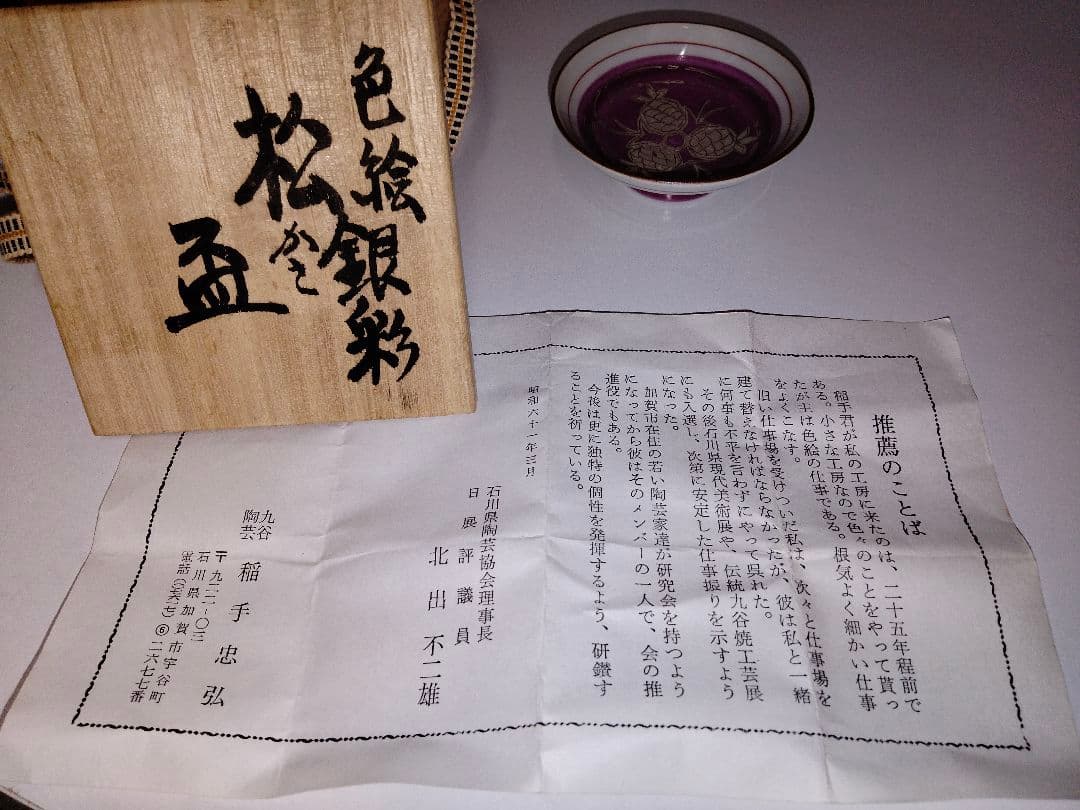 色絵銀彩
松かさ
盃
推薦のことば
稲手君が私の工房に来たのは、二十五年程前で
ある。小さな工房なので色々のことをやって貰っ
たが主は色絵の仕事である。根気よく細かい仕事
をよくこなす。
旧い仕事場を受けついだ私は、次々と仕事場を
建て替えなければならなかったが、彼は私と一緒
に何事も不平を言わずにやって呉れた。
その後石川県現代美術展や、伝統九谷焼工芸展
にも入選し、次第に安定した仕事振りを示すよう
になった。
加賀市在住の若い陶芸家達が研究会を持つよう
になってから彼はそのメンバーの一人で、会の推
進役でもある。
今後は更に独特の個性を発揮するよう、研鑽す
ることを祈っている。
昭和六十一年三月
石川県陶芸協会理事長
日展評議員
北出不二雄
九谷
陶芸
稲手忠弘
〒九二二-〇三
石川県加賀市宇谷町
電話(〇七六一七)⑥二六七七番